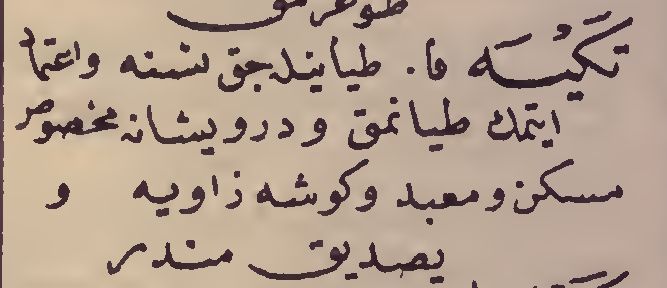 طوغرمق
تكيُه فا. طيانيله‌جق نسنه واعتماد
ايتمك طيانمق و درويشانه مخصوص
مسكن و معبد وكوشه زاويه و
يصديق مندر